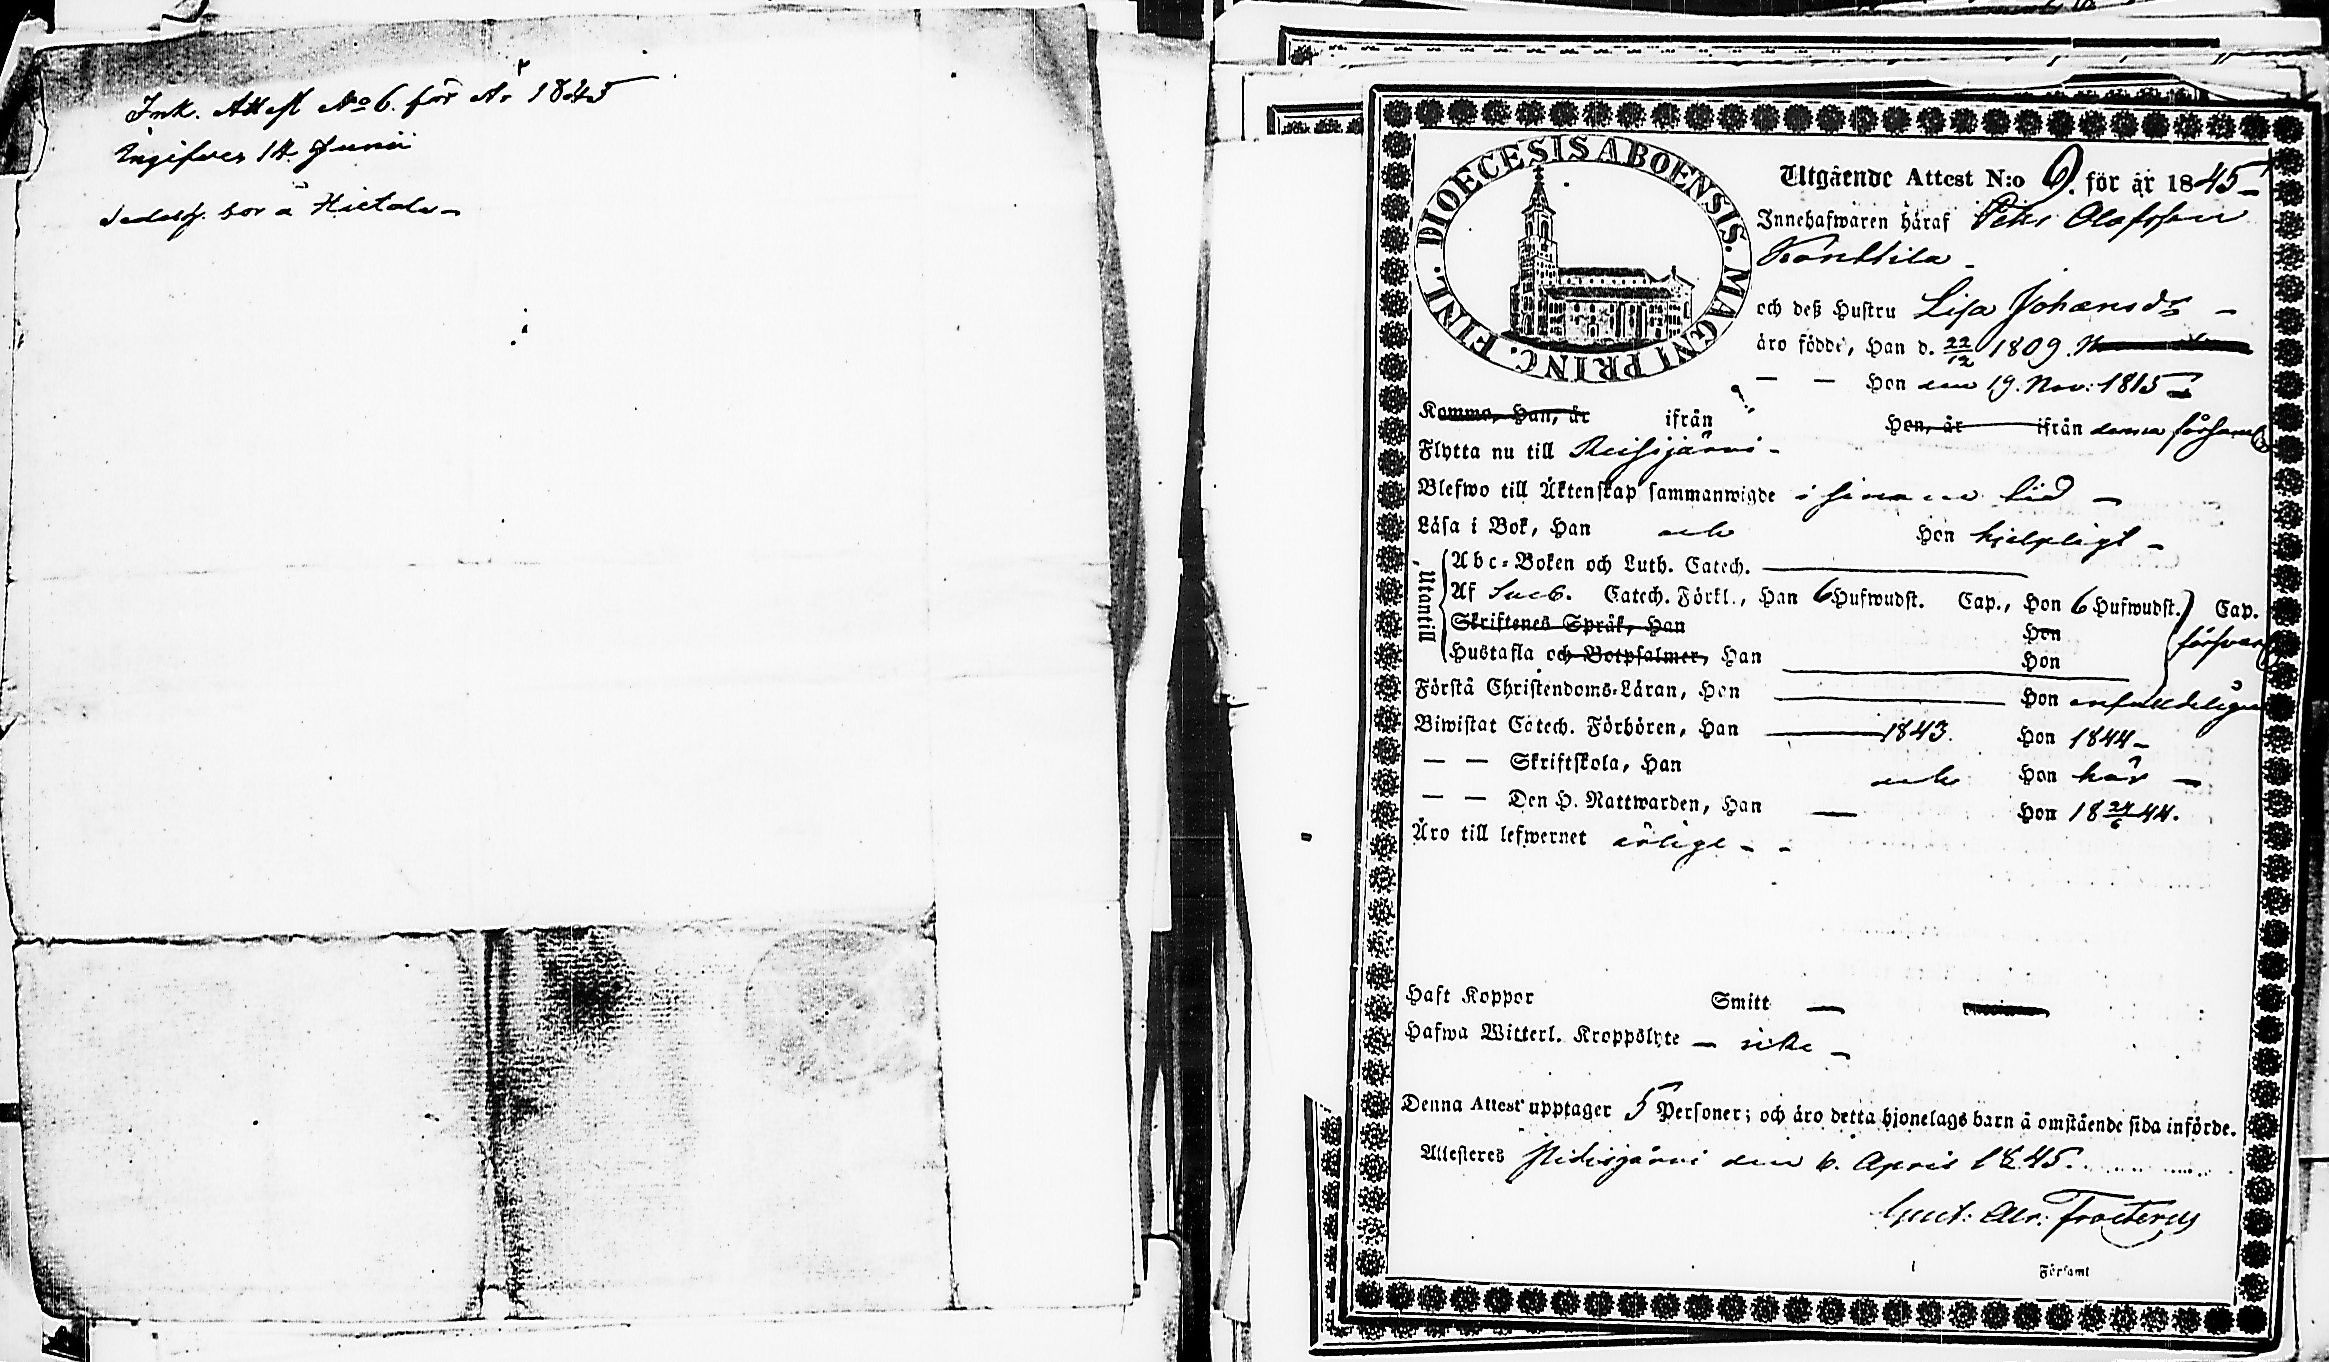 Ink. Attest No 6. för År 1845
Ingifves 14 Junii
bor å Hietala
DIOECESIS ABOENSIS. MAGNI PRINC. FINL.
Utgående Attest N:o 9. för år 1845
Innehafwaren häraf Petr Olofsson
Konttila
och deß Hustru Lisa Johansdr
äro födde, Han d. 22/12 1809.
— — Hon den 19. Nov: 1815
Komma, Han, är ifrån Hon, är ifrån denna församl
Flytta nu till Reisjärvi
Blefwo till Äktenskap sammanwigde i sinom tid
Läsa i Bok, Han och Hon hjelpligt
Utantill
Abc-Boken och Luth. Catech.
Af Sveb. Catech. Förkl., Han 6 Hufwudst. Cap., Hon 6 Hufwudst. Cap.
Skriftenes Språk, Han Hon försvar
Hustafla och Botpsalmer, Han Hon
Förstå Christendoms-Läran, Han Hon enfaldeligen
Biwistat Catech. Förhören, Han 1843. Hon 1844
— — Skriftskola, Han och Hon här
— — Den H. Nattwarden, Han — Hon 18 24/6 44.
Äro till lefwernet ärlige
Haft Koppor Smitt —
Hafwa Witterl. Kroppslyte — icke
Denna Attest upptager 5 Personer; och äro detta hjonelags barn å omstående sida införde.
Attesteres Pidisjärvi den 6. April 1845.
Gust: Alr: Frosterus
Församl